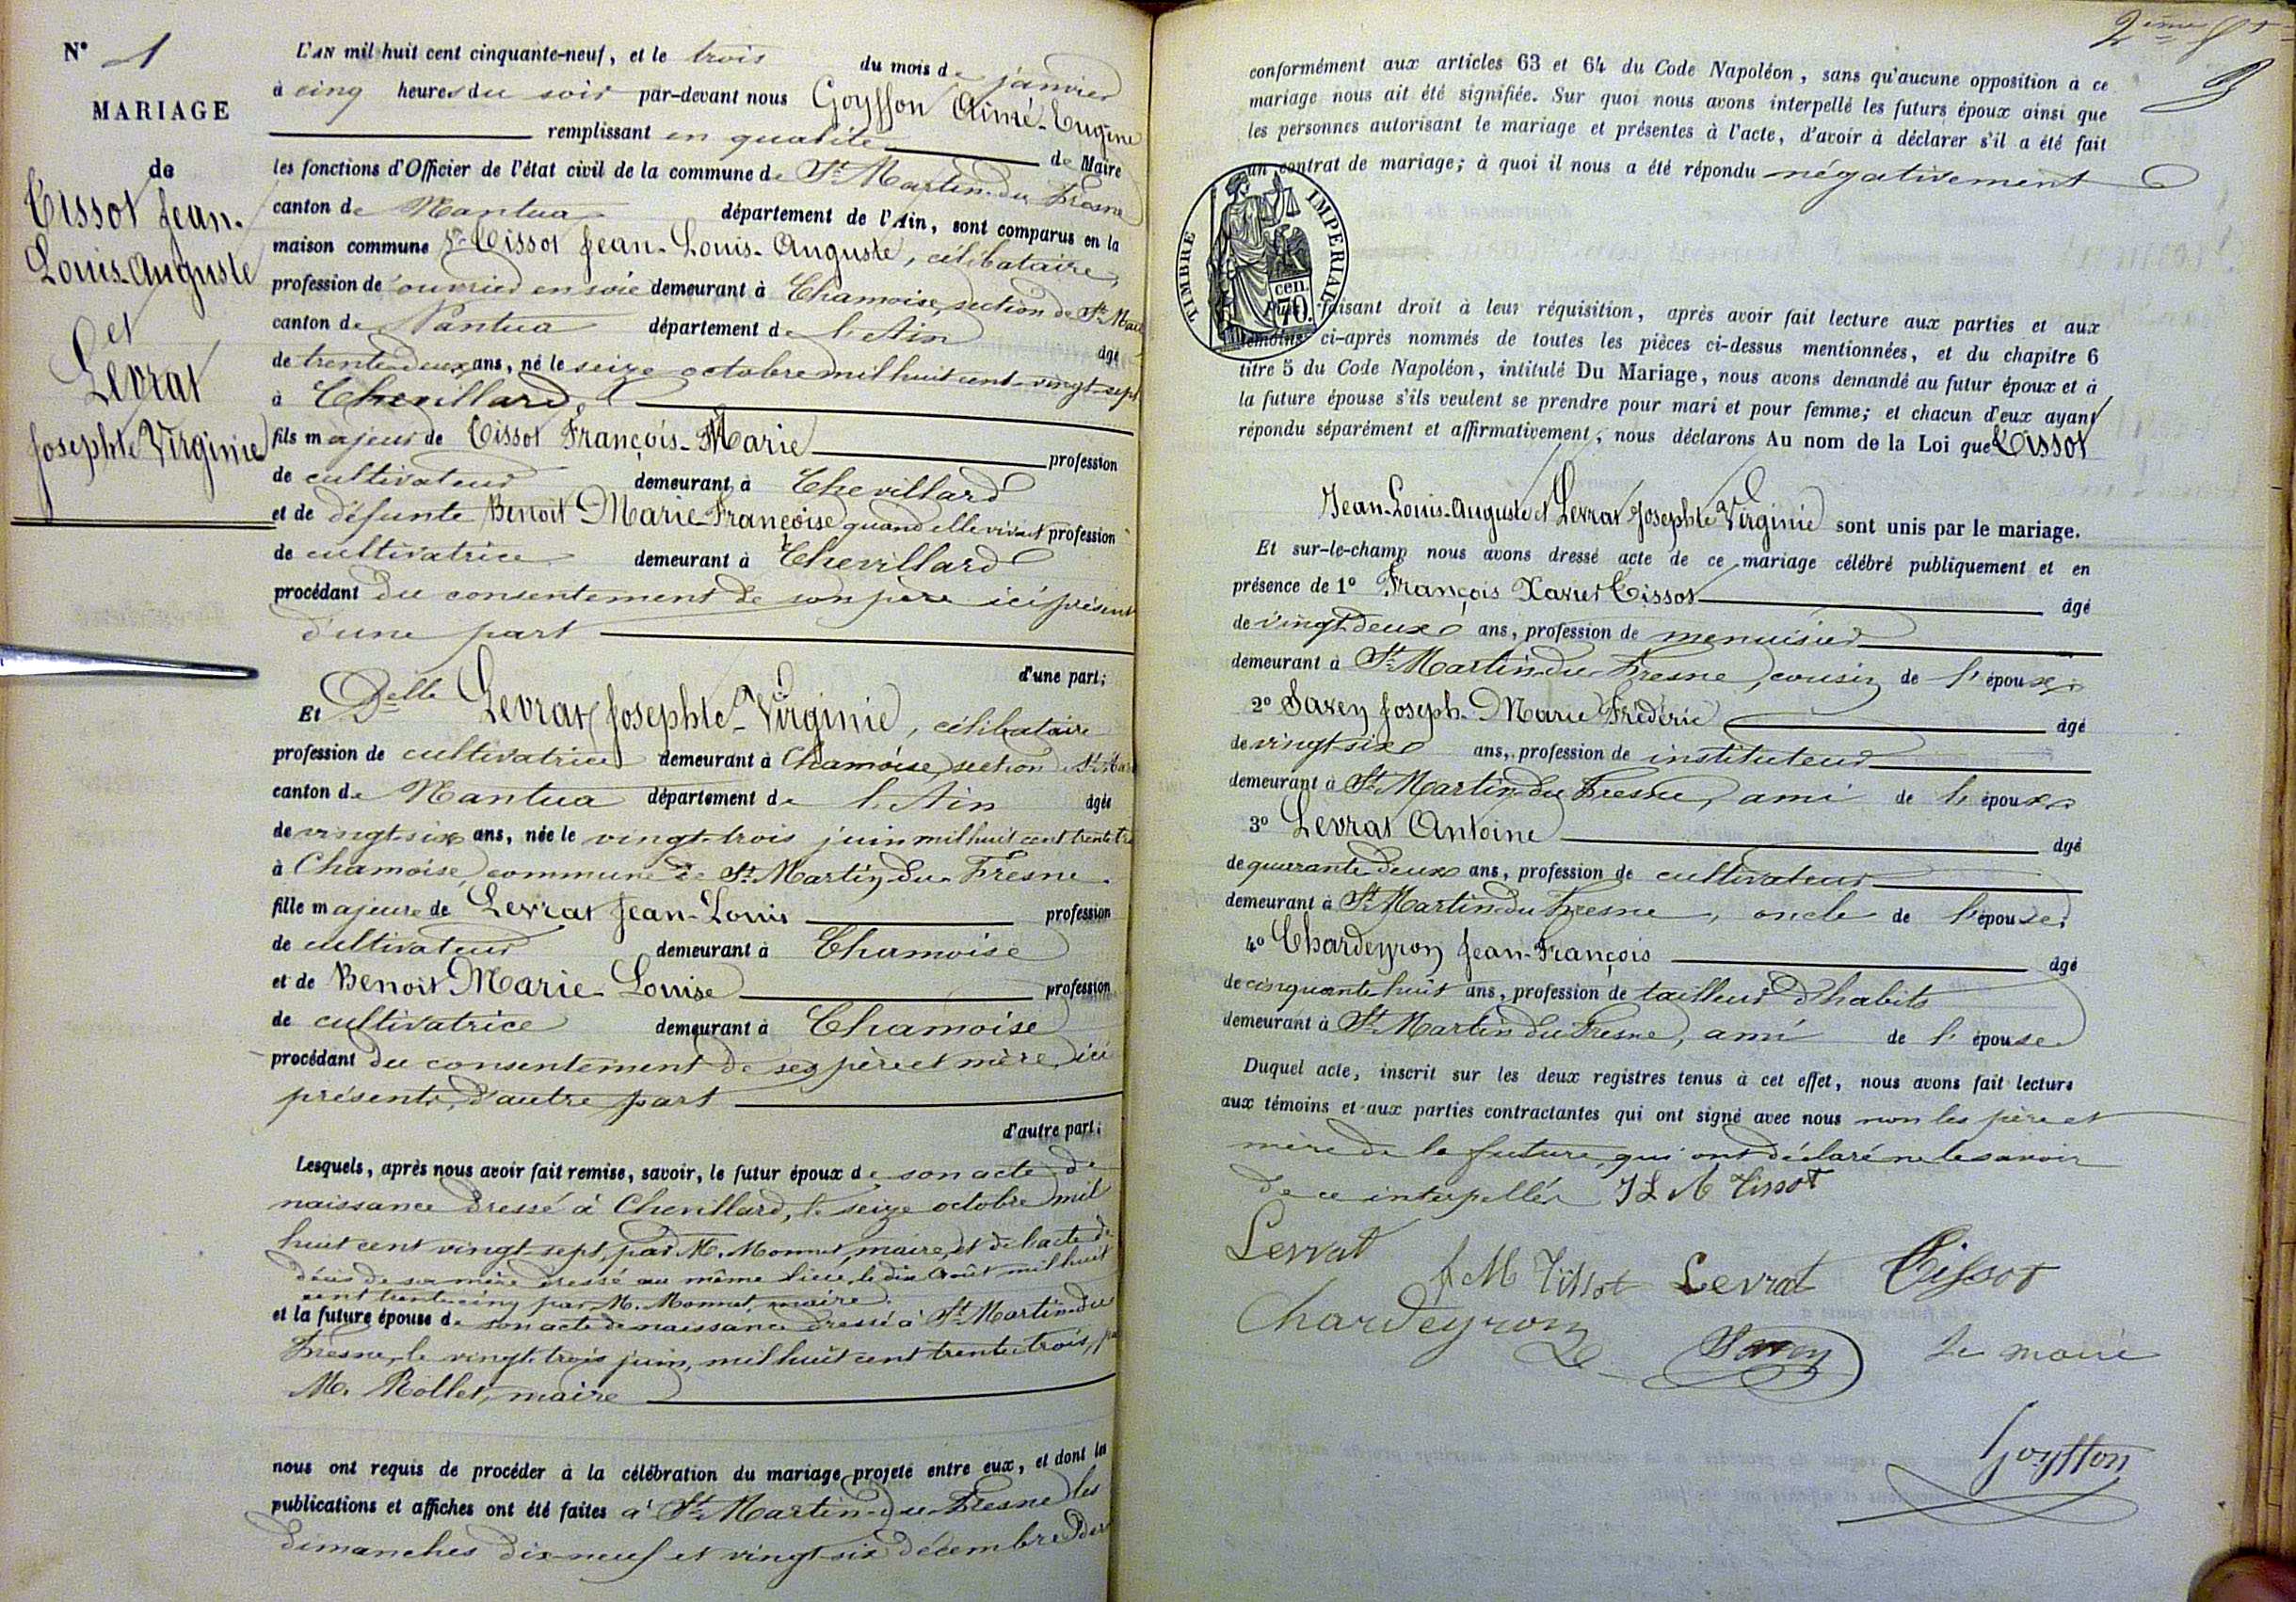 N° 1
MARIAGE
de
Tissot Jean-
Louis-Auguste
et
Levrat
Josephte Virginie
L'AN mil huit cent cinquante-neuf, et le trois du mois de janvier
à cinq heures du soir par-devant nous Goyffon Aimé-Eugène
remplissant en qualité de Maire
les fonctions d'Officier de l'état civil de la commune de St Martin-du Fresne
canton de Nantua département de l'Ain, sont comparus en la
maison commune Sr Tissot Jean-Louis-Auguste, célibataire,
profession de ouvrier en soie demeurant à Chamoise, section de St Mar
canton de Nantua département de l'Ain âgé
de trente-deux ans, né le seize octobre mil huit cent vingt-sept
à Chevillard,
fils majeur de Tissot François-Marie profession
de cultivateur demeurant à Chevillard
et de défunte Benoit Marie Françoise quand elle vivait profession
de cultivatrice demeurant à Chevillard
procédant du consentement de son père ici présent
d'une part
d'une part;
Et Delle Levrat Josephte-Virginie, célibataire
profession de cultivatrice demeurant à Chamoise, section St Mar
canton de Nantua département de l'Ain âgée
de vingt-six ans, née le vingt-trois juin mil huit cent trente-tr
à Chamoise, commune de St Martin du Fresne.
fille majeure de Levrat Jean-Louis profession
de cultivateur demeurant à Chamoise
et de Benoit Marie Louise profession
de cultivatrice demeurant à Chamoise
procédant du consentement de ses père et mère, ici
présents, d'autre part
d'autre part;
Lesquels, après nous avoir fait remise, savoir, le futur époux de son acte de
naissance dressé à Chevillard, le seize octobre mil
huit cent vingt-sept, par M. Monnet, maire, et de l'acte de
décès de sa mère dressé au même lieu, le dix août mil huit
cent trente-cinq par M. Monnet, maire.
et la future épouse de son acte de naissance dressé à St Martin-du
Fresne, le vingt-trois juin, mil huit cent trente-trois, pa
M. Rollet, maire
nous ont requis de procéder à la célébration du mariage projeté entre eux, et dont les
publications et affiches ont été faites à St Martin-du-Fresne les
dimanches dix-neuf et vingt-six décembre der
2eme
conformément aux articles 63 et 64 du Code Napoléon, sans qu'aucune opposition à ce
mariage nous ait été signifiée. Sur quoi nous avons interpellé les futurs époux ainsi que
les personnes autorisant le mariage et présentes à l'acte, d'avoir à déclarer s'il a été fait
un contrat de mariage; à quoi il nous a été répondu négativement
TIMBRE IMPERIAL
70 cen.
Puis, faisant droit à leur réquisition, après avoir fait lecture aux parties et aux
témoins ci-après nommés de toutes les pièces ci-dessus mentionnées, et du chapitre 6
titre 5 du Code Napoléon, intitulé Du Mariage, nous avons demandé au futur époux et à
la future épouse s'ils veulent se prendre pour mari et pour femme; et chacun d'eux ayant
répondu séparément et affirmativement, nous déclarons Au nom de la Loi que Tissot
Jean-Louis-Auguste et Levrat Josephte Virginie sont unis par le mariage.
Et sur-le-champ nous avons dressé acte de ce mariage célébré publiquement et en
présence de 1° François Xavier Tissot âgé
de vingt-deux ans, profession de menuisier
demeurant à St Martin-du-Fresne, cousin de l'époux.
2° Savey Joseph-Marie Frédéric âgé
de vingt-six ans, profession de instituteur
demeurant à St Martin du Fresne, ami de l'époux.
3° Levrat Antoine âgé
de quarante-deux ans, profession de cultivateur
demeurant à St Martin du Fresne, oncle de l'épouse.
4° Chardeyron Jean-François âgé
de cinquante huit ans, profession de tailleur d'habits
demeurant à St Martin du Fresne, ami de l'épouse
Duquel acte, inscrit sur les deux registres tenus à cet effet, nous avons fait lecture
aux témoins et aux parties contractantes qui ont signé avec nous non les père et
mère de la future, qui ont déclaré ne le savoir
de ce interpellés J L A Tissot
Levrat
f M Tissot Levrat Tissot
Chardeyron Savey Le maire
Goyffon